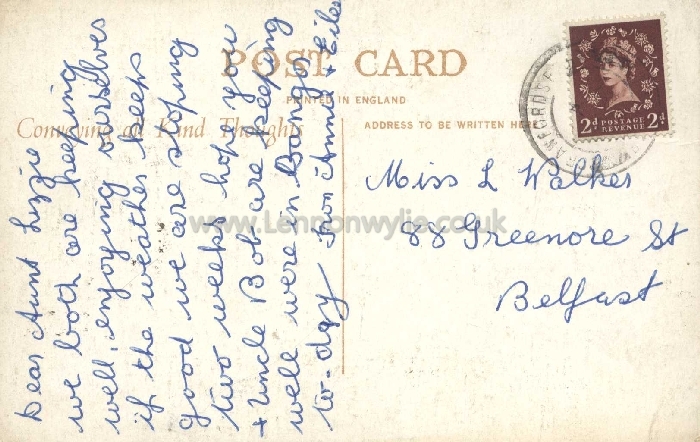 POST CARD
PRINTED IN ENGLAND
Conveying all Kind Thoughts
ADDRESS TO BE WRITTEN HERE
Dear Aunt Lizzie
we both are keeping
well, enjoying ourselves
if the weather keeps
good we are stoping
two weeks hope you
+ Uncle Bob are keeping
well were in Bangor
to-day from Annie +
Miss L Walker
88 Greenore St
Belfast
2d POSTAGE REVENUE 2d
www.Lennonwylie.co.uk